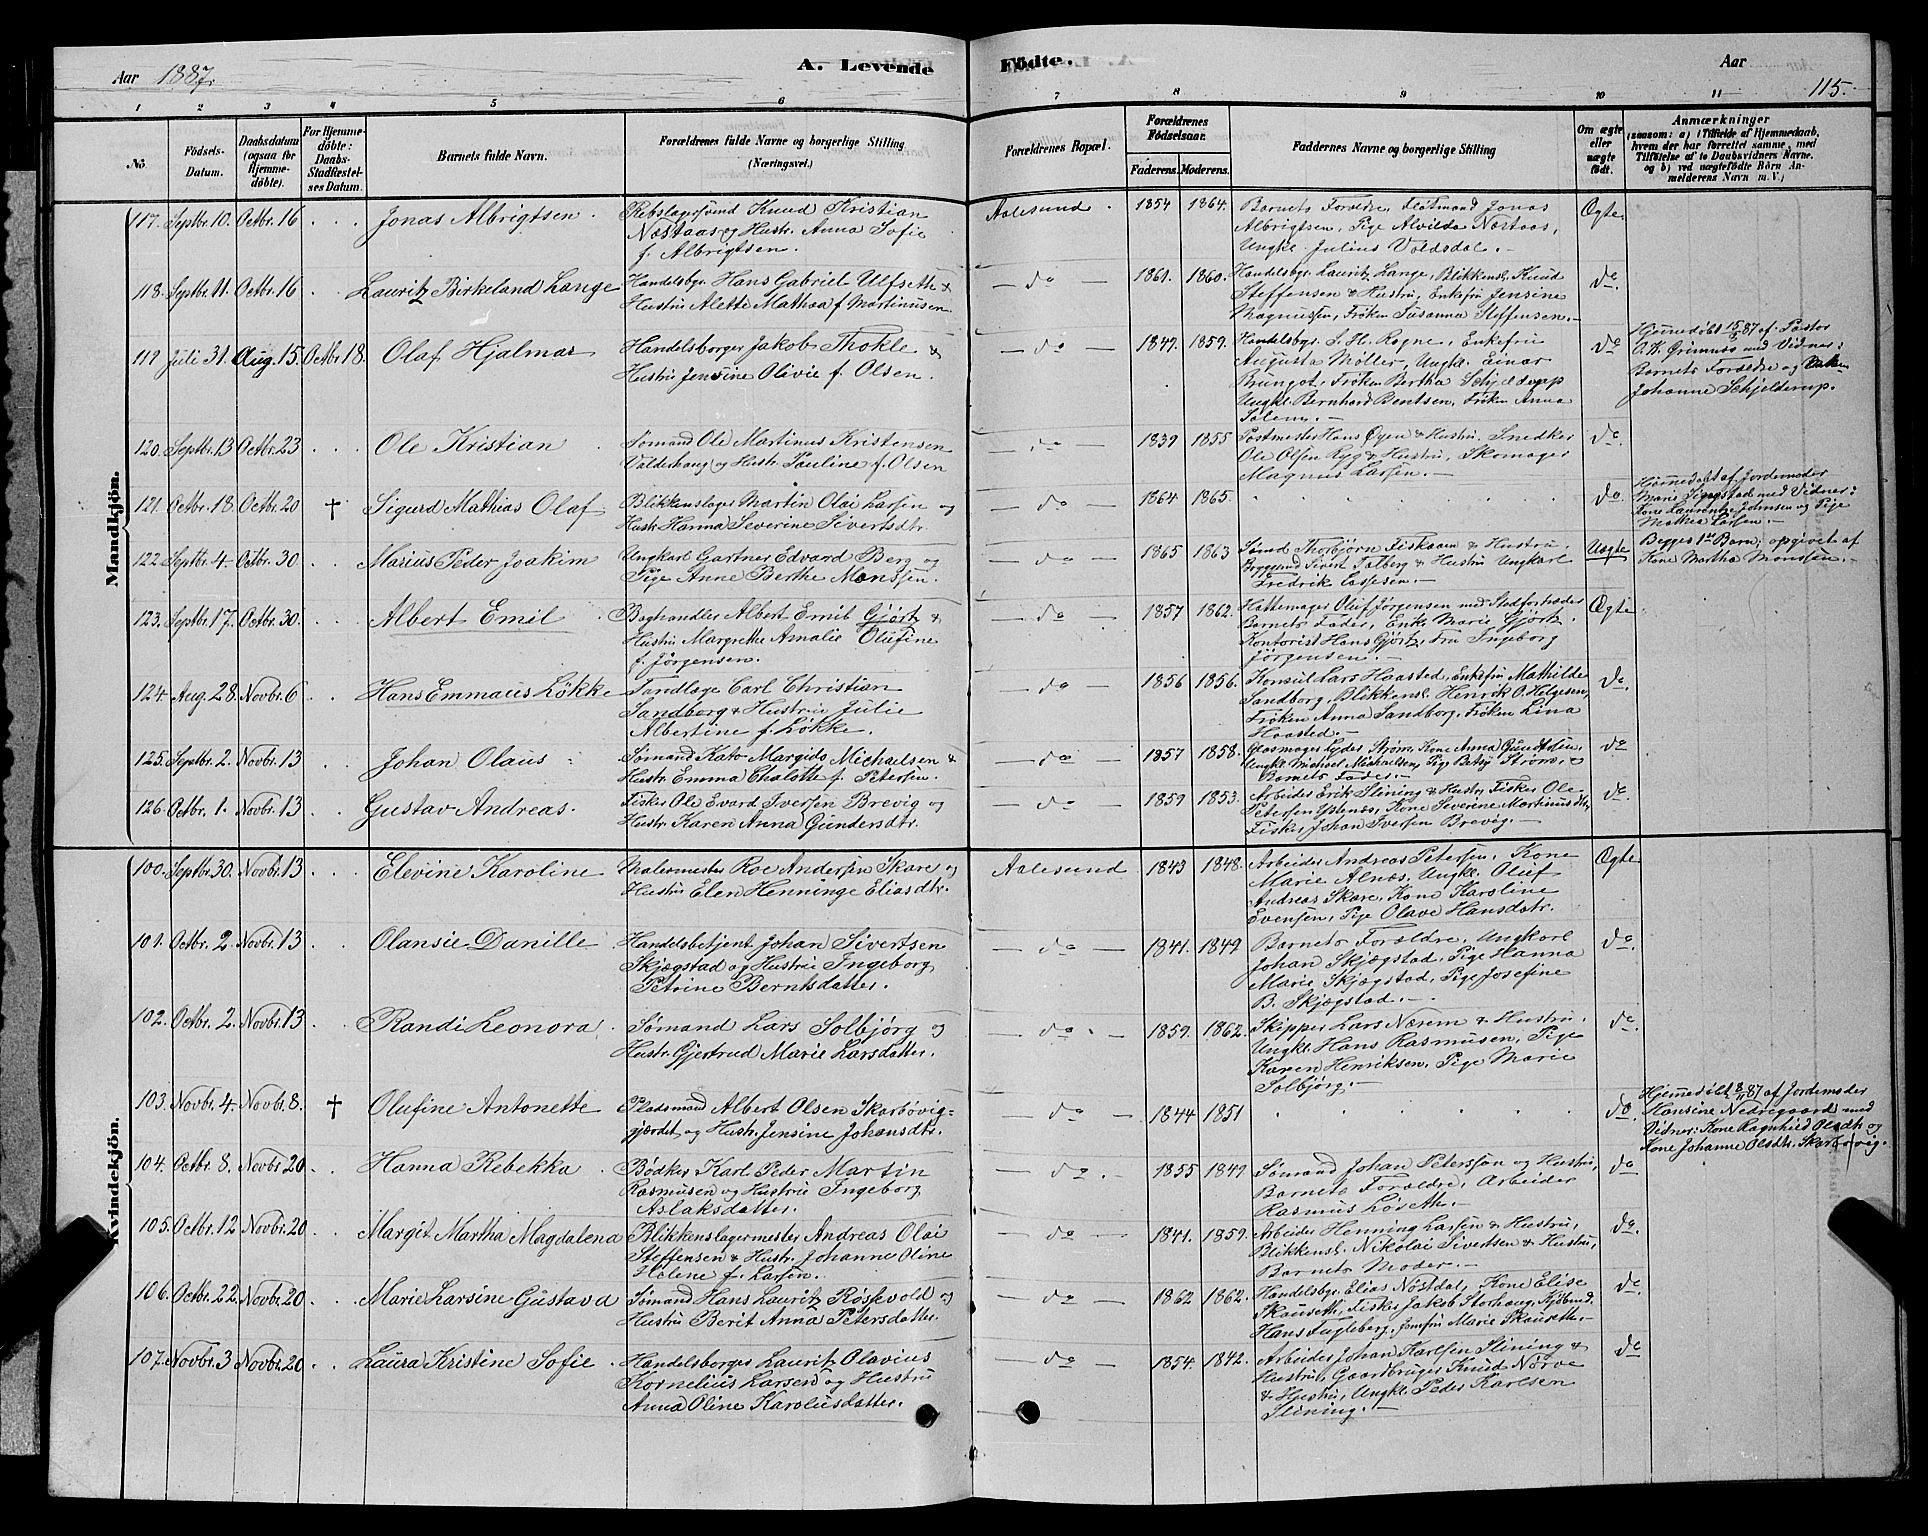 Aar 1887.
A. Levende Födte.
Aar
115.
1 2 3 4 5 6 7 8 9 10 11
No
Födsels-Datum.
Daabsdatum (ogsaa for Hjemmedöbte).
For Hjemmedöbte: Daabs-Stadfæstelses Datum.
Barnets fulde Navn.
Forældrenes fulde Navne og borgerlige Stilling (Næringsvei.)
Forældrenes Bopæl.
Forældrenes Födselsaar.
Faderens. Moderens.
Faddernes Navne og borgerlige Stilling
Om ægte eller uægte födt.
Anmærkninger
(saasom: a) i Tilfælde af Hjemmedaab, hvem der har forrettet samme, med Tilföielse af to Daabsvidners Navne, og b) ved uægtefödte Börn Anmelderens Navn m. V.)
Mandkjön.
117. Septbr. 10. Octbr. 16 Jonas Albrigtsen. Rebslagersvend Knud Kristian
Nastaas og Hustr. Anna Sofie
f. Albrigtsen.
Aalesund. 1854 1864. Barnets Foreldre, Flötmand Jonas
Albrigtsen, Pige Alvilda Nastaas,
Ungkl. Julius Valdsdal.
Ægte
118. Septbr. 11. Octbr. 16 Lauritz Birkeland Lange Handelsbgr. Hans Gabriel Ulfseth &
Hustru Alette Mathea f. Martinusen
do 1861. 1860. Handelsbgr. Lauritz Lange, Blikkensl. Knud
Steffensen & Hustru, Enkefru Jensine
Magnussen, Fröken Susanna Steffensen.
do
119 Juli 31. Aug. 15. Octbr 18. Olaf Hjalmar Handelsborger Jakob Thokle &
Hustru Jensine Olivie f. Olsen.
do 1849. 1859. Handelsbgr. S. H. Rogne, Enkefru
Augusta Möller, Ungkl. Einar
Brungot, Fröken Bertha Schjelderup
Ungkl. Bernhard Bentsen, Fröken Anna
Solem.
do
Hjemmedöbt 15/8 87 af Pastor
O. K. Grimnes med Vidner:
Barnets Foreldre og
Johanne Schjelderup.
120. Septbr. 13 Octbr. 23 Ole Kristian Sömand Ole Martinus Kristensen
Valderhaug og Hustr. Pauline f. Olsen
do 1839 1855 Postmester Hans Öyen & Hustru, Snedker
Ole Olsen Ryg & Hustru, Skomager
Magnus Larsen.
do.
121. Octbr. 18. Octbr. 20 † Sigurd Mathias Olaf Blikkenslager Martin Olai Larsen og
Hustr. Hanna Severine Sivertsdtr.
do 1864 1865.
do
Hjemmedöbt af Jordemoder
med Vidner:
Kone Laurentze Johnsen og Pige
Mathea Larsen.
122. Septbr. 4. Octbr. 30 Marius Peder Joakim Ungkarl Gartner Edvard Berg og
Pige Anne Berthe Monssen.
do 1865 1863 Sömd. Thorbjörn Fiskaaen & Hustru,
Bryggemd. Sivert Talberg & Hustru Ungkarl
Fredrik Lassesen.
Uægte
Begges 1ste Barn; opgivet af
Kone Martha Monssen.
123. Septbr. 17. Octbr. 30. Albert Emil Boghandler Albert Emil Gjörtz &
Hustru Margrethe Amalie Olufine
f. Jörgensen.
do 1857 1862. Hattemager Oluf Jörgensen med Stedfortræder
Barnets Fader, Enke Marie Gjörtz,
Kontorist Hans Gjörtz, Fru Ingeborg
Jörgensen.
Ægte
124. Aug. 28. Novbr. 6 Hans Emmaus Lökke Tandlæge Carl Christian
Sandborg & Hustru Julie
Albertine f. Lökke.
do 1856 1856. Konsul Lars Haasted, Enkefru Mathilde
Sandborg, Blikkensl. Henrik O. Helgesen,
Fröken Anna Sandborg, Fröken Lina
Haasted.
do.
125. Septbr. 2. Novbr. 13 Johan Olaus Sömand Kato Margido Michaelsen &
Hustr. Emma Chalotte f. Petersen.
do 1857 1858. Glasmager Peder Ström, Kone Anna Gundersen,
Ungkl. Michael Michaelsen, Pige Betsy Ström, &
Barnets Fader.
do
126. Octbr. 1. Novbr. 13 Gustav Andreas. Fisker Ole Evard Iversen Brevig og
Hustr. Karen Anna Gundersdtr.
do 1859 1853. Arbeider Erik Slining & Hustr. Fisker Ole
Petersen Ystenæs, Kone Severine Martinusdtr,
Fisker Johan Iversen Brevig.
do.
Kvindekjön.
100. Septbr. 30. Novbr. 13 Elevine Karoline Malermester Roe Andersen Skare og
Hustru Elen Henninge Eliasdtr.
Aalesund 1843 1848. Arbeider Andreas Petersen, Kone
Marie Alnæs, Ungkl. Oluf
Andreas Skare, Kone Karoline
Evensen, Pige Olave Hansdatr.
Ægte
101. Octbr. 2. Novbr. 13 Olansie Danille Handelsbetjent Johan Sivertsen
Skjægstad og Hustru Ingeborg
Petrine Berntsdatter.
do 1841. 1849 Barnets Foreldre, Ungkarl
Johan Skjægstad, Pige Hanna
Marie Skjægstad, Pige Josefine
B. Skjægstad.
do.
102. Octbr. 2. Novbr. 13 Randi Leonora Sömand Lars Solbjörg og
Hustr. Gjertrud Marie Larsdatter.
do 1859. 1862. Skipper Lars Nærem & Hustru,
Ungkl. Hans Rasmusen, Pige
Karen Henriksen, Pige Marie
Solbjörg.
do
103. Novbr. 4. Novbr. 8. † Olufine Antonette Pladsmand Albert Olsen Skarbövig-
gjærdet og Hustr. Jensine Johansdtr.
do 1844 1851
do.
Hjemmedöbt 8/11 87 af Jordemoder
Hansine Nedregaard med
Vidner: Kone Ragnhild Olsdtr og
Kone Johanne Olsdtr. Skarbövig.
104. Octbr. 8. Novbr. 20 Hanna Rebekka Bödker Karl Peder Martin
Rasmusen og Hustru Ingeborg
Aslaksdatter.
do 1855 1849 Sömand Johan Peterssen og Hustru,
Barnets Foreldre, Arbeider
Rasmus Löseth.
do
105. Octbr. 12 Novbr. 20 Margit Martha Magdalena Blikkenslagermester Andreas Olai
Steffensen & Hustr. Johanne Oline
Helene f. Larsen.
do 1841. 1859. Arbeider Henning Larsen & Hustru,
Blikkensl. Nikolai Sivertsen & Hustru,
Barnets Moder.
do.
106. Octbr. 22. Novbr. 20 Marie Larsine Gustava Sömand Hans Lauritz Rössevold og
Hustru Berit Anna Petersdatter.
do 1862 1862. Handelsbgr. Elias Nöstdal, Kone Elise
Skauseth, Fisker Jakob Storhaug, Kjöbmd.
Hans Fugleberg, Jomfru Marie Skauseth.
do
107. Novbr. 3 Novbr. 20 Laura Kristine Sofie Handelsborger Lauritz Olavius
Kornelius Larsen og Hustru
Anna Oline Karolusdatter.
do 1854. 1842. Arbeider Johan Karlsen Slining &
Hustru, Gaardbruger Knud Nörve
& Hustru, Ungkl. Peder Karlsen
Slining.
do